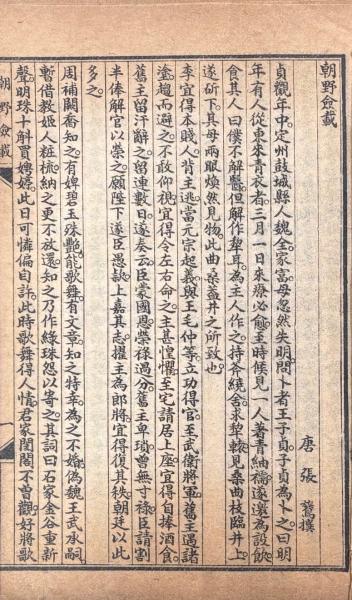 朝野僉載
唐 張 鷟撰
貞觀年中。定州鼓城縣人魏全。家富。母忽然失明。問卜者王子貞。子貞為卜之曰。明
年有人從東來青衣者。三月一日來療必愈。至時候見一人。著青紬襦。遂邀為設飲
食。其人曰。僕不解醫。但解作犂耳。為主人作之。持斧繞舍求犂轅。見桑曲枝臨井上。
遂斫下。其母兩眼煥然見物。此曲桑蓋井之所致也。
李宜得本賤人。背主逃。當元宗起義。與王毛仲等立功得官。至武衛將軍。舊主遇諸
塗。趨而避之。不敢仰視。宜得令左右命之。主甚惶懼。至宅請居上座。宜得自捧酒食。
舊主留汗辭之。留連數日。遂奏云。臣蒙國恩。榮祿過分。舊主卑瑣。曾無寸祿。臣請割
半俸解官以榮之。願陛下遂臣愚款。上嘉其志。擢主為郎將。宜得復其秩。朝廷以此
多之。
周補闕喬知之。有婢碧玉。姝艷能歌舞。有文章。知之特幸。為之不婚。偽魏王武承嗣
暫借教姬人粧梳。納之更不放還。知之乃作綠珠怨以寄之。其詞曰。石家金谷重新
聲。明珠十斛買娉婷。此日可憐偏自許。此時歌舞得人情。君家閨閣不曾觀。好將歌
朝野僉載
一